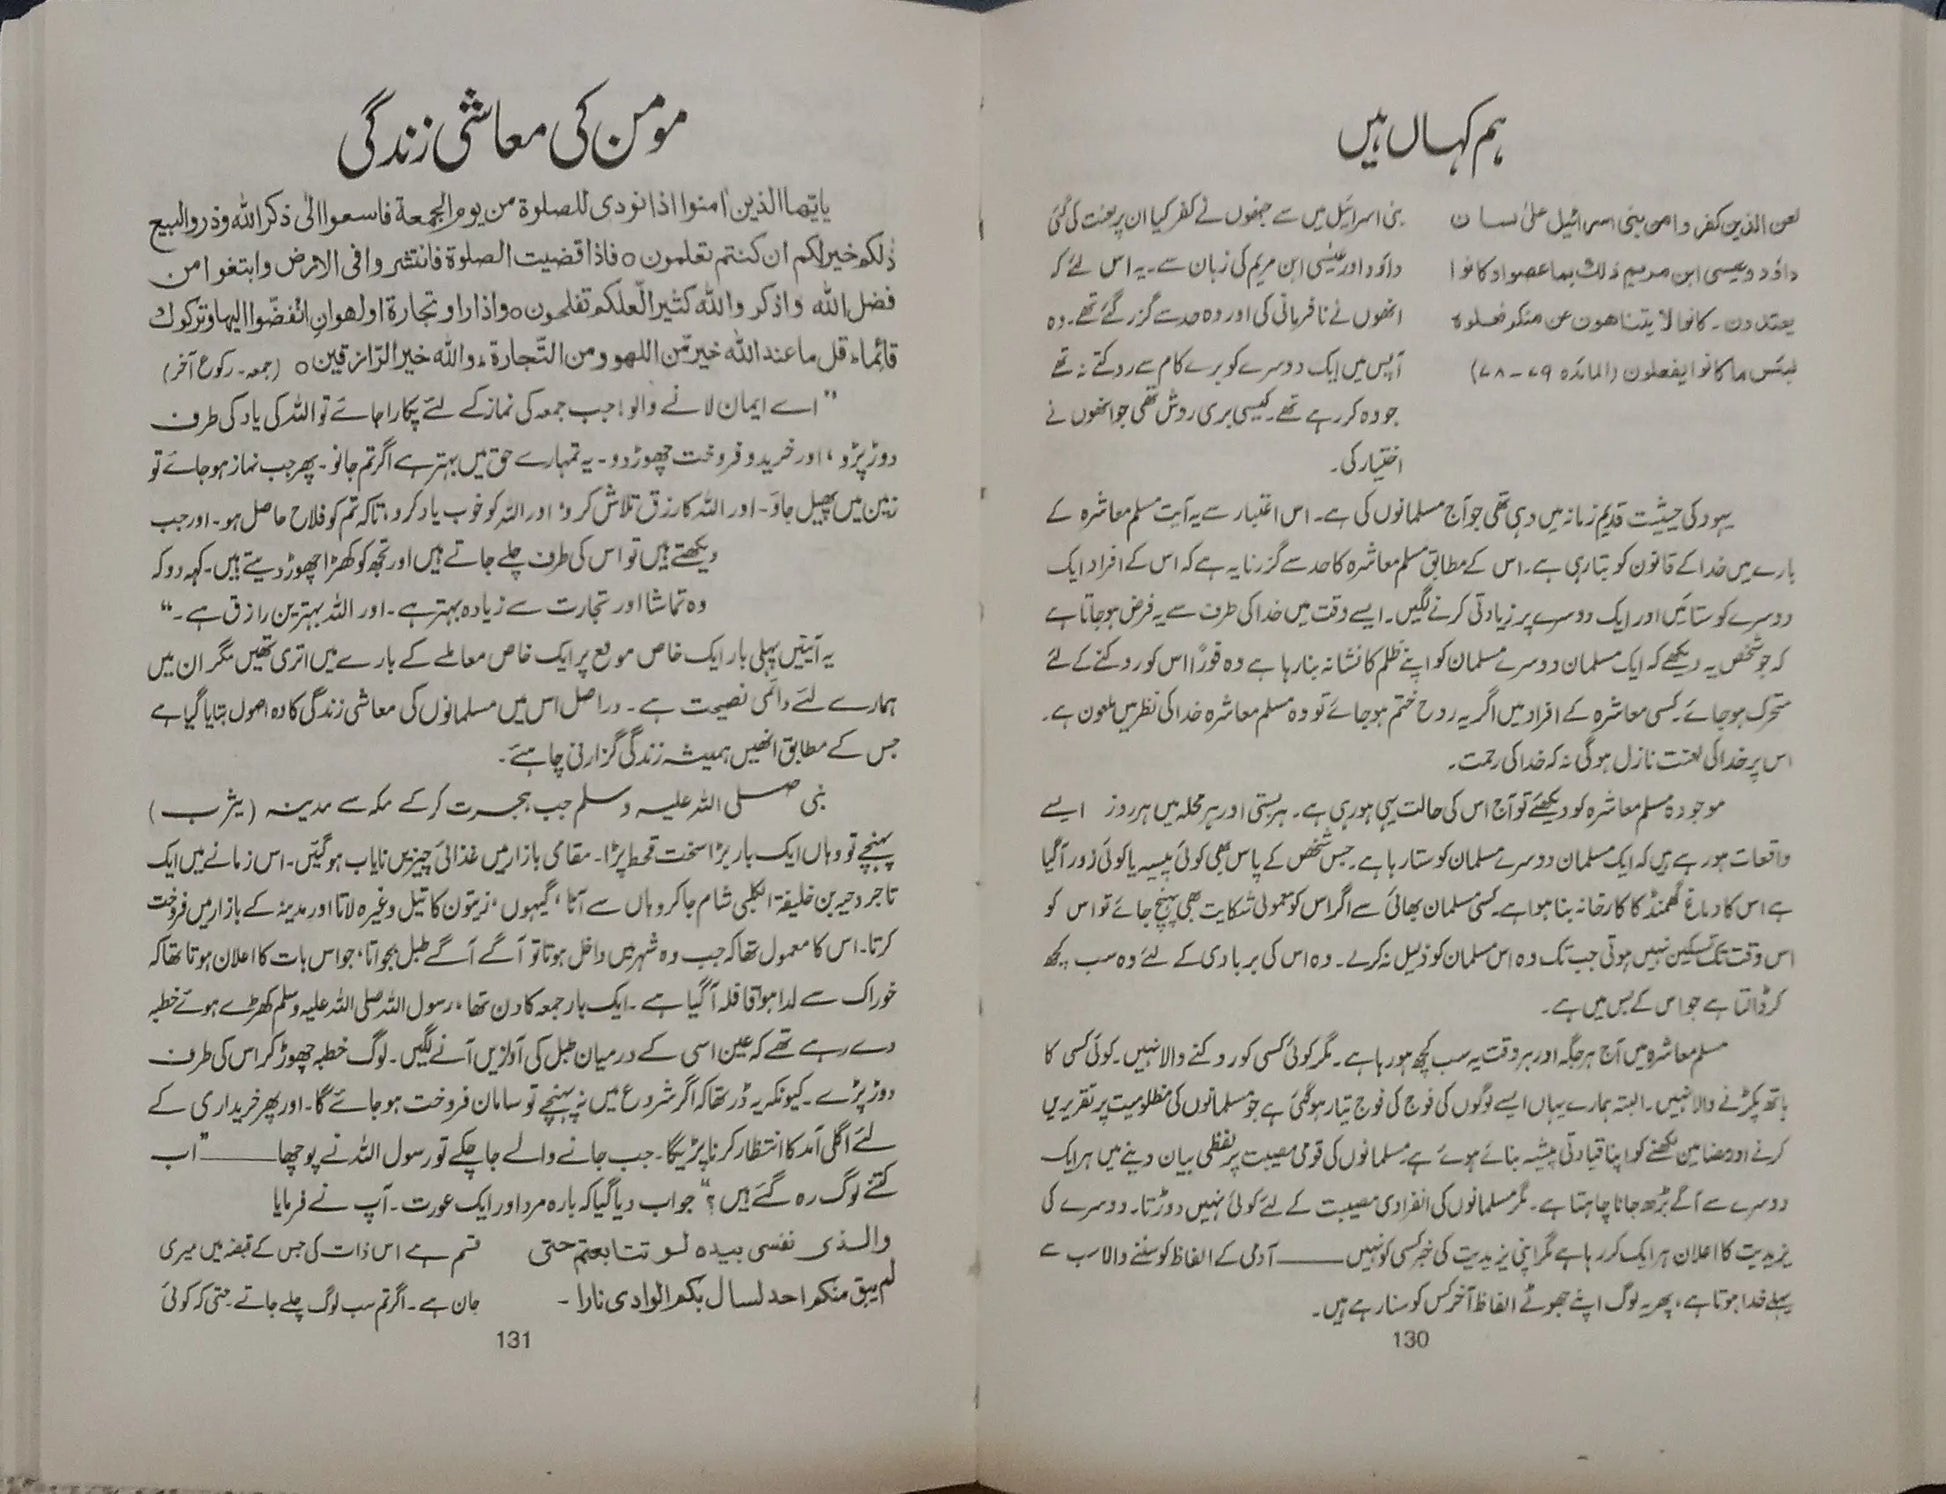 ہم کہاں ہیں
لعن الذین کفروا من بنی اسرائیل علیٰ لسان
داؤد و عیسی ابن مریم ذلک بما عصوا وکانوا
یعتدون۔ کانوا لا یتناھون عن منکر فعلوہ
لبئس ما کانوا یفعلون (المائدہ ۷۹-۷۸)
بنی اسرائیل میں سے جنھوں نے کفر کیا ان پر لعنت کی گئی
داؤد اور عیسٰی ابن مریم کی زبان سے۔ یہ اس لئے کہ
انھوں نے نافرمانی کی اور وہ حد سے گزر گئے تھے۔ وہ
آپس میں ایک دوسرے کو برے کام سے روکتے نہ تھے
جو وہ کر رہے تھے۔ کیسی بری روش تھی جو انھوں نے
اختیار کی۔
یہود کی حیثیت قدیم زمانہ میں وہی تھی جو آج مسلمانوں کی ہے۔ اس اعتبار سے یہ آیت مسلم معاشرہ کے
بارے میں خدا کے قانون کو بتا رہی ہے۔ اس کے مطابق مسلم معاشرہ کا حد سے گزرنا یہ ہے کہ اس کے افراد ایک
دوسرے کو ستائیں اور ایک دوسرے پر زیادتی کرنے لگیں۔ ایسے وقت میں خدا کی طرف سے یہ فرض ہو جاتا ہے
کہ جو شخص یہ دیکھے کہ ایک مسلمان دوسرے مسلمان کو اپنے ظلم کا نشانہ بنا رہا ہے وہ فوراً اس کو روکنے کے لئے
متحرک ہو جائے۔ کسی معاشرہ کے افراد میں اگر یہ روح ختم ہو جائے تو وہ مسلم معاشرہ خدا کی نظر میں ملعون ہے۔
اس پر خدا کی لعنت نازل ہوگی نہ کہ خدا کی رحمت۔
موجودہ مسلم معاشرہ کو دیکھئے تو آج اس کی حالت یہی ہو رہی ہے۔ ہر بستی اور ہر محلہ میں ہر روز ایسے
واقعات ہو رہے ہیں کہ ایک مسلمان دوسرے مسلمان کو ستا رہا ہے۔ جس شخص کے پاس بھی کوئی پیسہ یا کوئی زور آگیا
ہے اس کا دماغ گھمنڈ کا کارخانہ بنا ہوا ہے۔ کسی مسلمان بھائی سے اگر اس کو معمولی شکایت بھی پہنچ جائے تو اس کو
اس وقت تک تسکین نہیں ہوتی جب تک وہ اس مسلمان کو ذلیل نہ کرلے۔ وہ اس کی بربادی کے لئے وہ سب کچھ
کر ڈالتا ہے جو اس کے بس میں ہے۔
مسلم معاشرہ میں آج ہر جگہ اور ہر وقت یہ سب کچھ ہو رہا ہے۔ مگر کوئی کسی کو روکنے والا نہیں۔ کوئی کسی کا
ہاتھ پکڑنے والا نہیں۔ البتہ ہمارے یہاں ایسے لوگوں کی فوج کی فوج تیار ہوگئی ہے جو مسلمانوں کی مظلومیت پر تقریریں
کرنے اور مضامین لکھنے کو اپنا قیادتی پیشہ بنائے ہوئے ہے۔ مسلمانوں کی قومی مصیبت پر لفظی بیان دینے میں ہر ایک
دوسرے سے آگے بڑھ جانا چاہتا ہے۔ مگر مسلمانوں کی انفرادی مصیبت کے لئے کوئی نہیں دوڑتا۔ دوسرے کی
یزیدیت کا اعلان ہر ایک کر رہا ہے مگر اپنی یزیدیت کی خبر کسی کو نہیں ــــــــ آدمی کے الفاظ کو سننے والا سب سے
پہلے خدا ہوتا ہے، پھر یہ لوگ اپنے جھوٹے الفاظ آخر کس کو سنا رہے ہیں۔
130
مومن کی معاشی زندگی
یایھا الذین اٰمنوا اذا نودی للصلوۃ من یوم الجمعۃ فاسعوا الیٰ ذکر اللہ وذروا البیع
ذٰلکم خیر لکم ان کنتم تعلمون ○ فاذا قضیت الصلوۃ فانتشروا فی الارض وابتغوا من
فضل اللہ واذکروا اللہ کثیرا لّعلکم تفلحون ○ واذا راوا تجارۃ اولھوا نِ انْفَضّوا الیھا وترکوک
قائما، قل ما عند اللہ خیر مّن اللھو ومن التّجارۃ، واللہ خیر الرّازقین ○ (جمعہ۔ رکوع آخر)
”اے ایمان لانے والو! جب جمعہ کی نماز کے لئے پکارا جائے تو اللہ کی یاد کی طرف
دوڑ پڑو، اور خرید و فروخت چھوڑ دو۔ یہ تمہارے حق میں بہتر ہے اگر تم جانو۔ پھر جب نماز ہو جائے تو
زمین میں پھیل جاؤ۔ اور اللہ کا رزق تلاش کرو، اور اللہ کو خوب یاد کرو، تاکہ تم کو فلاح حاصل ہو۔ اور جب
دیکھتے ہیں تو اس کی طرف چلے جاتے ہیں اور تجھ کو کھڑا چھوڑ دیتے ہیں۔ کہہ دو کہ
وہ تماشا اور تجارت سے زیادہ بہتر ہے۔ اور اللہ بہترین رازق ہے۔“
یہ آیتیں پہلی بار ایک خاص موقع پر ایک خاص معاملے کے بارے میں اتری تھیں مگر ان میں
ہمارے لئے دائمی نصیحت ہے۔ دراصل اس میں مسلمانوں کی معاشی زندگی کا وہ اصول بتایا گیا ہے
جس کے مطابق انھیں ہمیشہ زندگی گزارنی چاہئے۔
نبی صلی اللہ علیہ وسلم جب ہجرت کر کے مکہ سے مدینہ (یثرب)
پہنچے تو وہاں ایک بار بڑا سخت قحط پڑا۔ مقامی بازار میں غذائی چیزیں نایاب ہوگئیں۔ اس زمانے میں ایک
تاجر دحیہ بن خلیفۃ الکلبی شام جا کر وہاں سے آٹا، گیہوں، زیتون کا تیل وغیرہ لاتا اور مدینہ کے بازار میں فروخت
کرتا۔ اس کا معمول تھا کہ جب وہ شہر میں داخل ہوتا تو آگے آگے طبل بجواتا، جو اس بات کا اعلان ہوتا تھا کہ
خوراک سے لدا ہوا قافلہ آگیا ہے۔ ایک بار جمعہ کا دن تھا، رسول اللہ صلی اللہ علیہ وسلم کھڑے ہوئے خطبہ
دے رہے تھے کہ عین اسی کے درمیان طبل کی آوازیں آنے لگیں۔ لوگ خطبہ چھوڑ کر اس کی طرف
دوڑ پڑے۔ کیونکہ یہ ڈر تھا کہ اگر شروع میں نہ پہنچے تو سامان فروخت ہو جائے گا۔ اور پھر خریداری کے
لئے اگلی آمد کا انتظار کرنا پڑیگا۔ جب جانے والے جا چکے تو رسول اللہ نے پوچھا ــــــــ ”اب
کتنے لوگ رہ گئے ہیں؟“ جواب دیا گیا کہ بارہ مرد اور ایک عورت۔ آپ نے فرمایا
والذی نفسی بیدہ لو تتابعتم حتی
لم یبق منکم احد لسال بکم الوادی نارا۔
قسم ہے اس ذات کی جس کے قبضہ میں میری
جان ہے۔ اگر تم سب لوگ چلے جاتے حتیٰ کہ کوئی
131